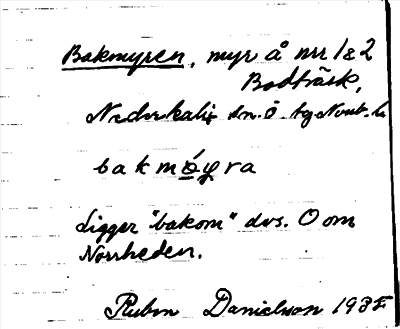 Bakmyren, myr å nrr 1&2
Bodträsk,
Nederkalix sn. Ö. tg Norrb. l.
bakmøyra
Ligger "bakom" dvs. O om
Norrheden.
Ruben Danielson 1935